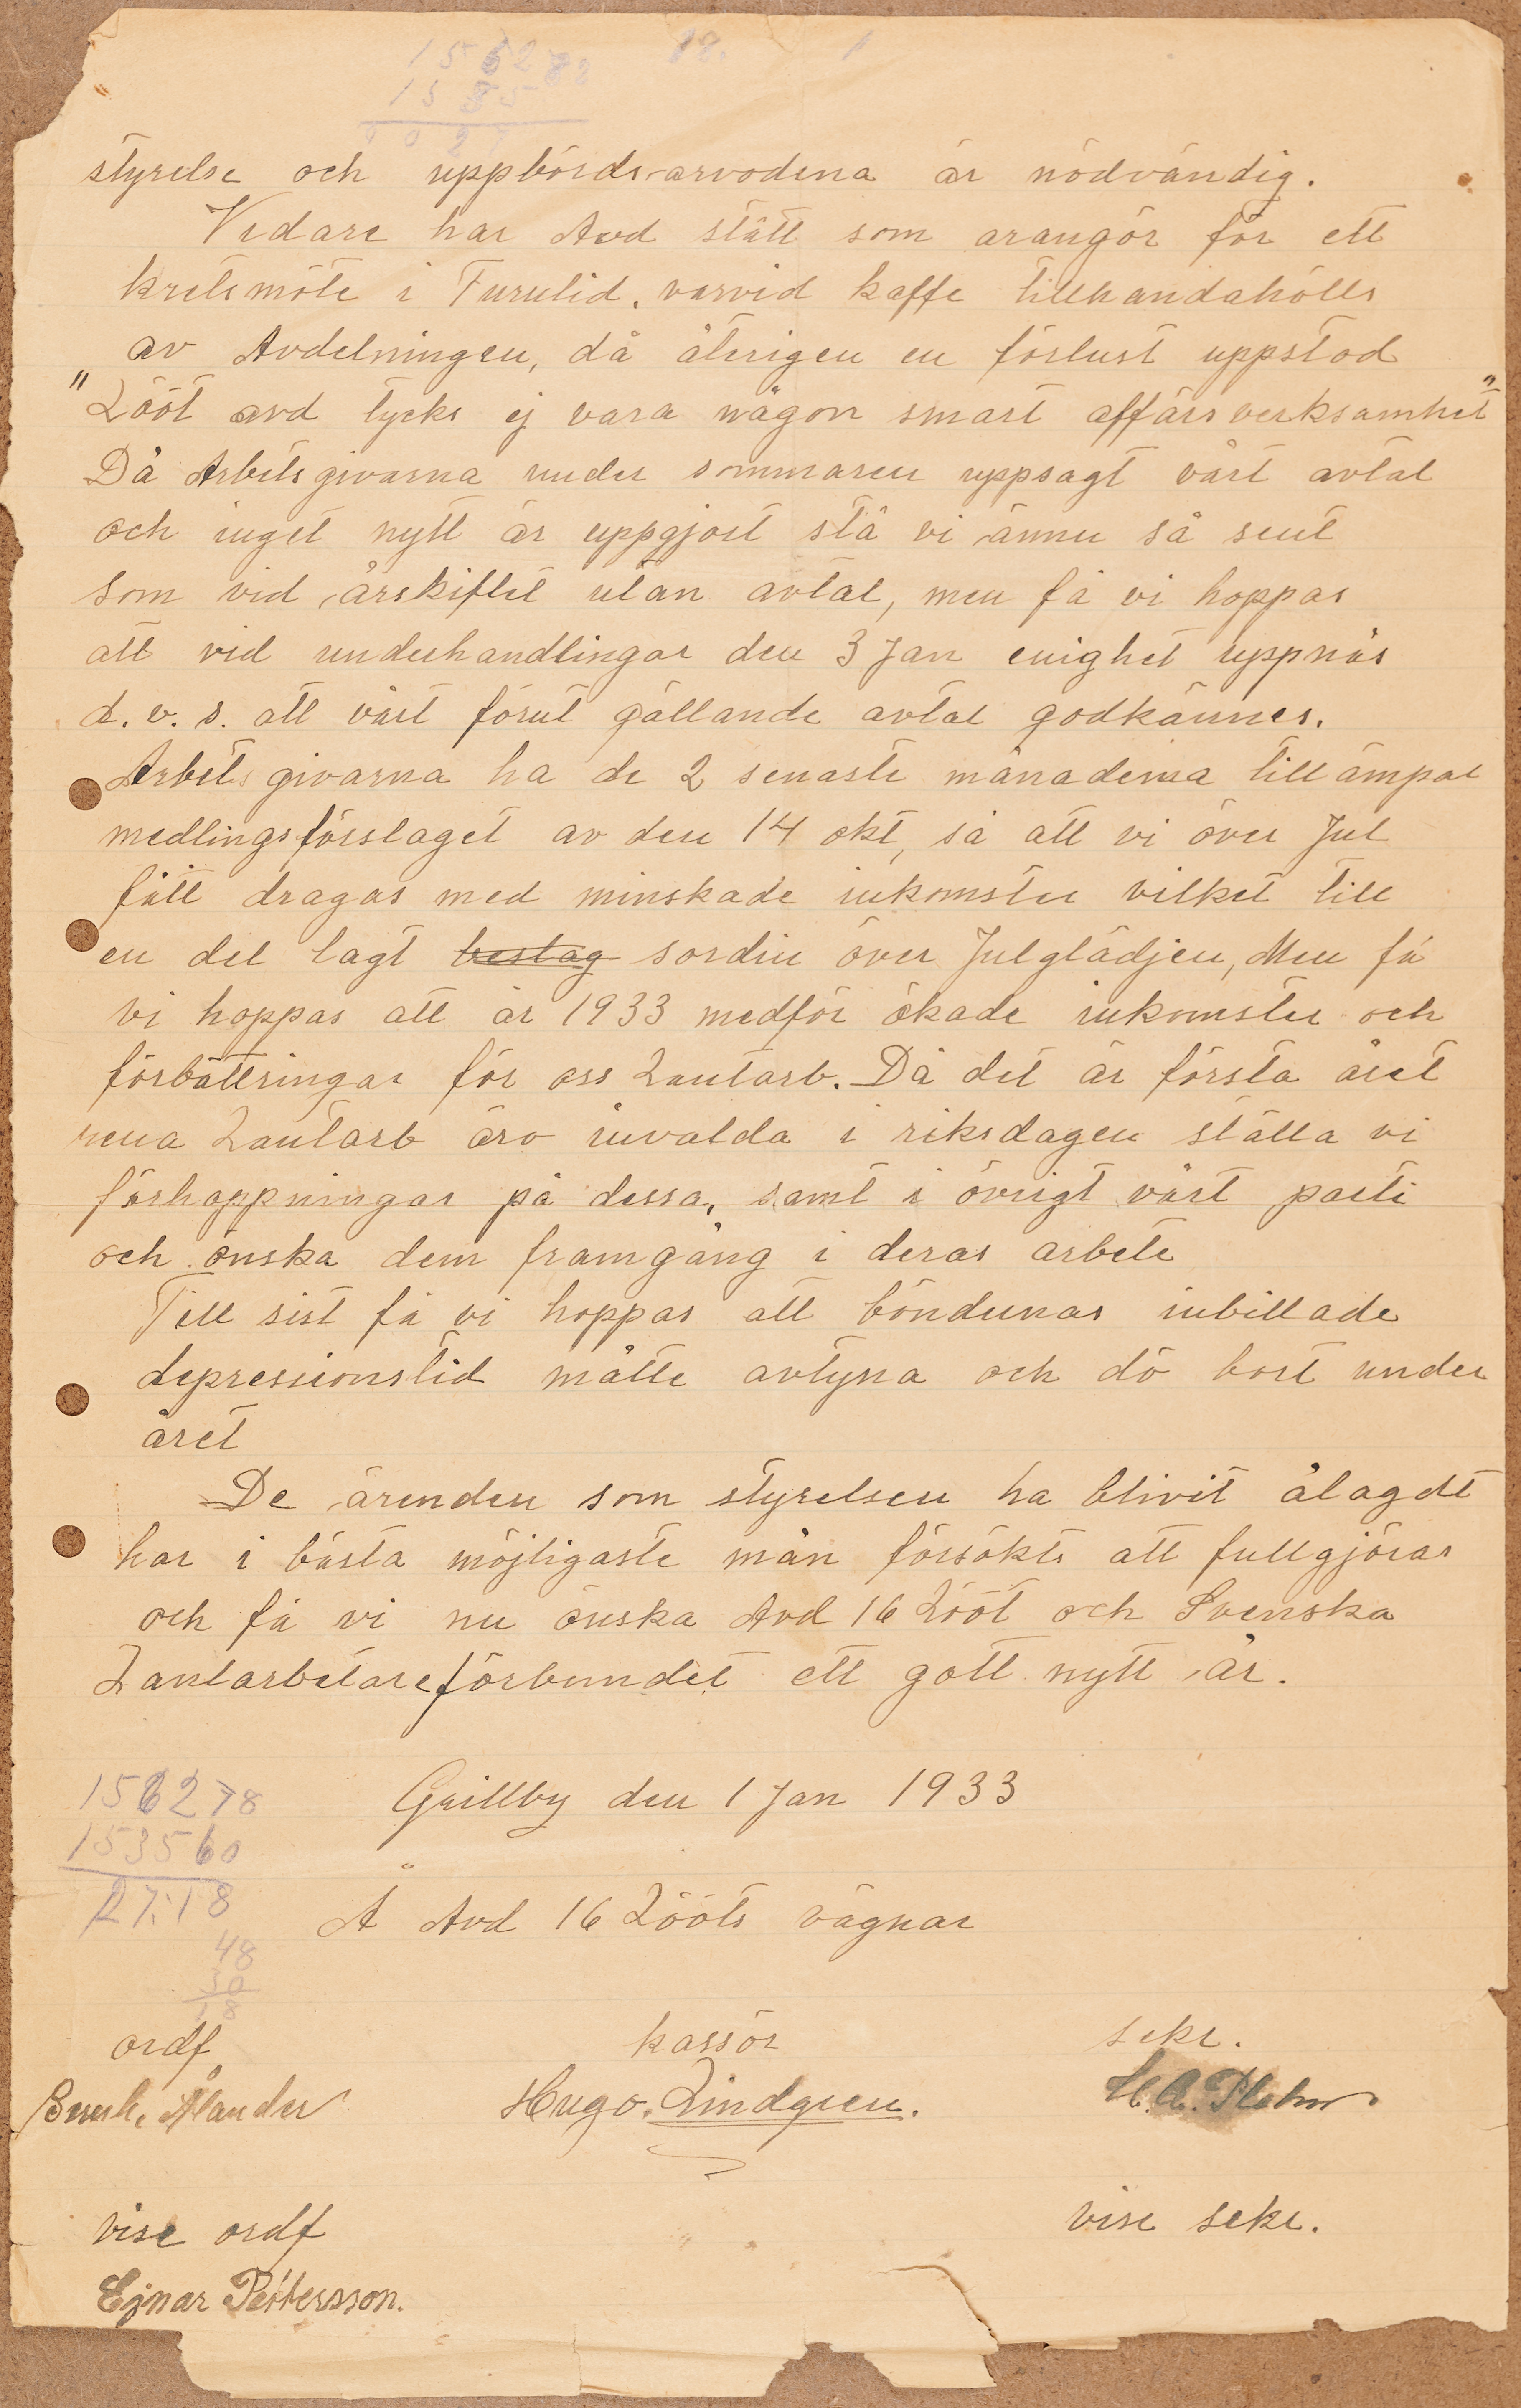 styrelse och uppbördsarvodena är nödvändig.
Vidare har Avd stått som arangör för ett
kretsmöte i Furulid, varvid kaffe tillhandahölls
av Avdelningen, då återigen en förlust uppstod
"Lööt avd tycks ej vara någon smart affärsverksamhet"
Då Arbetsgivarna under sommaren uppsagt vårt avtal
och inget nytt är uppgjort stå vi ännu så sent
som vid årskiftet utan avtal, men få vi hoppas
att vid underhandlingar den 3 Jan enighet uppnås
d. v. s. att vårt förut gällande avtal godkännes.
Arbetsgivarna ha de 2 senaste månaderna tillämpat
medlingsförslaget av den 14 okt, så att vi över Jul
fått dragas med minskade inkomster vilket till
en del lagt beslag sordin över Julglädjen, Men få
vi hoppas att år 1933 medför ökade inkomster och
förbättringar för oss Lantarb. Då det är första året
rena Lantarb äro invalda i riksdagen ställa vi
förhoppningar på dessa, samt i övrigt vårt parti
och önska dem framgång i deras arbete
Till sist få vi hoppas att böndernas inbillade
depressionstid måtte avtyna och dö bort under
året
De ärenden som styrelsen ha blivit ålagdt
har i bästa möjligaste mån försökts att fullgjöras
och få vi nu önska Avd 16 Lööt och Svenska
Lantarbetareförbundet ett gott nytt år.
156278
153560
27.18
48
30
Grillby den 1 Jan 1933
Å Avd 16 Lööts vägnar
ordf kassör sekr.
Ålander Hugo. Lindgren. H. A.
vise ordf vise sekr.
Ejnar Pettersson.